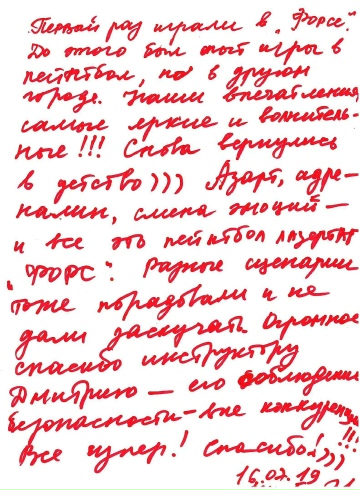 Первый раз играли в "Форсе".
До этого был опыт игры в
пейнтбол, но в другом
городе. Наши впечатления
самые яркие и волнитель-
ные!!! Снова вернулись
в детство))) Азарт, адре-
налин, смена эмоций —
и все это пейнтбол лазертаг
"ФОРС". Разные сценарии
тоже порадовали и не
дали заскучать. Огромное
спасибо инструктору
Дмитрию — его соблюдение
безопасности - вне конкуренции!!!
Все супер! Спасибо!)))
16.07.19